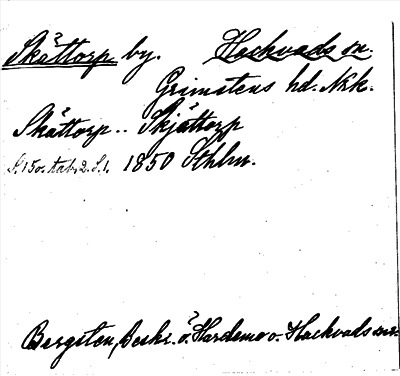 Skåttorp by. Hackvads sn.
Grimstens hd. Nkk.
Skåttorp .. Skjättorp
S. 150. tab. 2. S. 1. 1850 Sthlm.
Bergsten, Beskr. ö. Hardemo o. Hackvads snr.